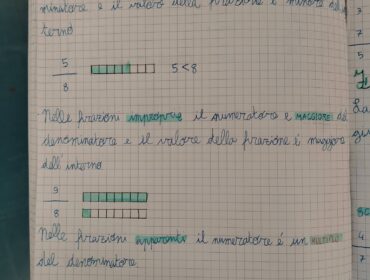 minatore e il valore della frazione è minore del
terno
5
8
5<8
Nelle frazioni improprie il numeratore e MAGGIORE del
denominatore e il valore della frazione é maggiore
dell'interno.
9
8
Nelle frazioni apparenti il numeratore é un MULTIPLO
del denominatore.
3
7
5
80
4
7